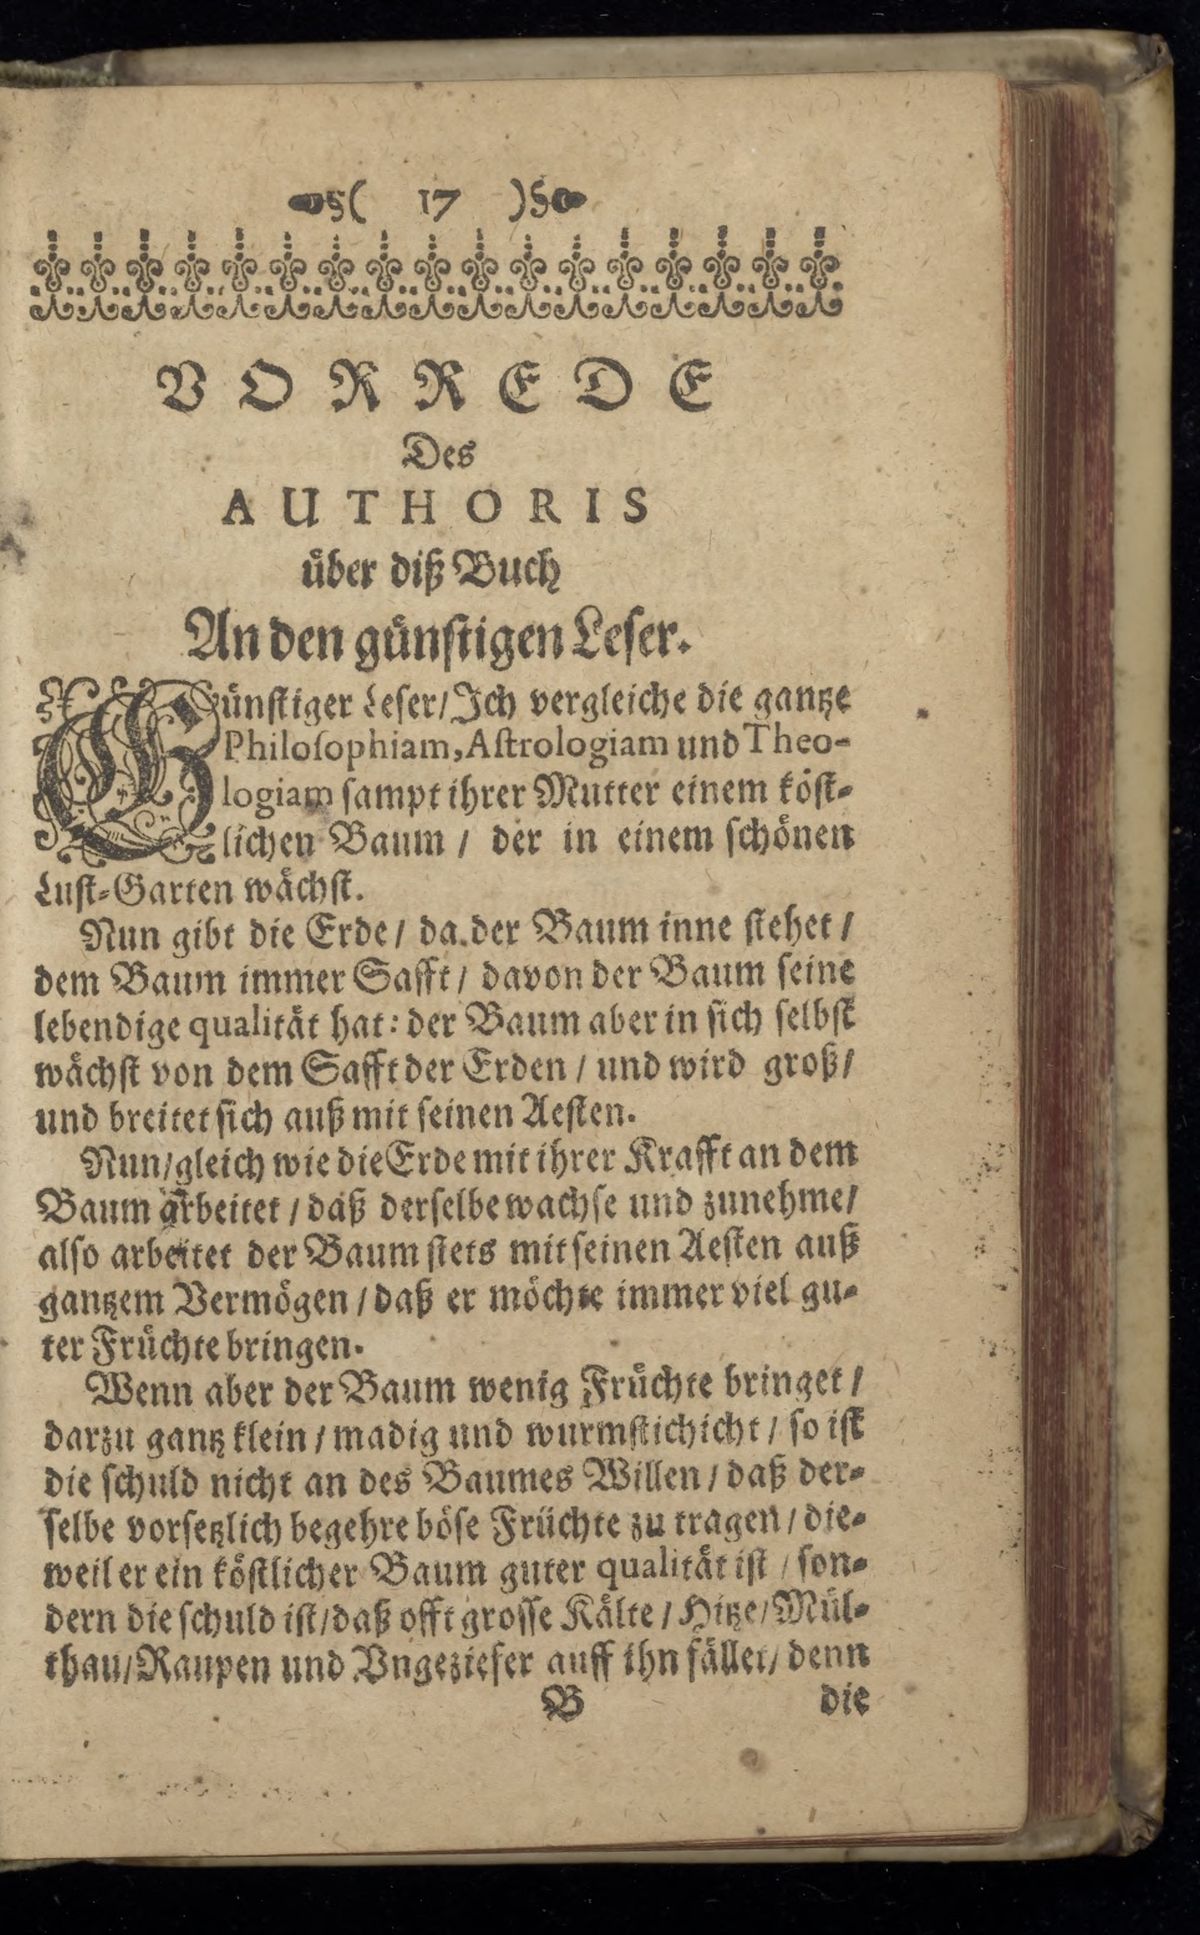 ( 17 )
VORREDE
Des
AUTHORIS
über diß Buch
An den günstigen Leser.
Günstiger Leser/ Ich vergleiche die gantze
Philosophiam, Astrologiam und Theo-
logiam sampt ihrer Mutter einem köst-
lichen Baum / der in einem schönen
Lust-Garten wächst.
Nun gibt die Erde / da der Baum inne stehet /
dem Baum immer Safft / davon der Baum seine
lebendige qualität hat: der Baum aber in sich selbst
wächst von dem Safft der Erden / und wird groß /
und breitet sich auß mit seinen Aesten.
Nun / gleich wie die Erde mit ihrer Krafft an dem
Baum arbeitet / daß derselbe wachse und zunehme /
also arbeitet der Baum stets mit seinen Aesten auß
gantzem Vermögen / daß er möchte immer viel gu-
ter Früchte bringen.
Wenn aber der Baum wenig Früchte bringet /
darzu gantz klein / madig und wurmstichicht / so ist
die schuld nicht an des Baumes Willen / daß der-
selbe vorsetzlich begehre böse Früchte zu tragen / die-
weil er ein köstlicher Baum guter qualität ist / son-
dern die schuld ist / daß offt grosse Kälte / Hitze / Mül-
thau / Raupen und Vngeziefer auff ihn fället / denn
B die